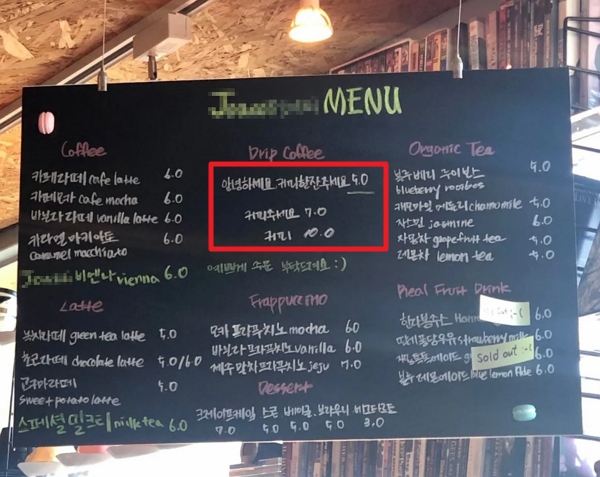 MENU
Coffee
카페라떼 cafe latte 6.0
카페모카 cafe mocha 6.0
바닐라라떼 vanilla latte 6.0
카라멜마키아토 6.0
caramel macchiato
비엔나 vienna 6.0
Drip Coffee
안녕하세요 커피한잔주세요 5.0
커피주세요 7.0
커피 10.0
예쁘게 주문 부탁드려요 :)
Organic Tea
블루베리 루이보스 5.0
blueberry rooibos
캐모마일 메들리 chamomile 5.0
자스민 jasmine 6.0
자몽차 grapefruit tea 5.0
레몬차 lemon tea 5.0
Latte
녹차라떼 green tea latte 5.0
초코라떼 chocolate latte 5.0/6.0
고구마라떼 5.0
sweet potato latte
스페셜 밀크티 milk tea 6.0
Frappuccino
모카 프라푸치노 mocha 6.0
바닐라 프라푸치노 vanilla 6.0
제주 말차 프라푸치노 jeju 7.0
Dessert
크레이프케잌 스콘 베이글 브라우니
7.0 5.0 5.0 5.0 3.0
Real Fruit Drink
한라봉주스 6.0
strawberry milk 6.0
Sold out :-( 6.0
블루레몬에이드 blue lemon Ade 6.0